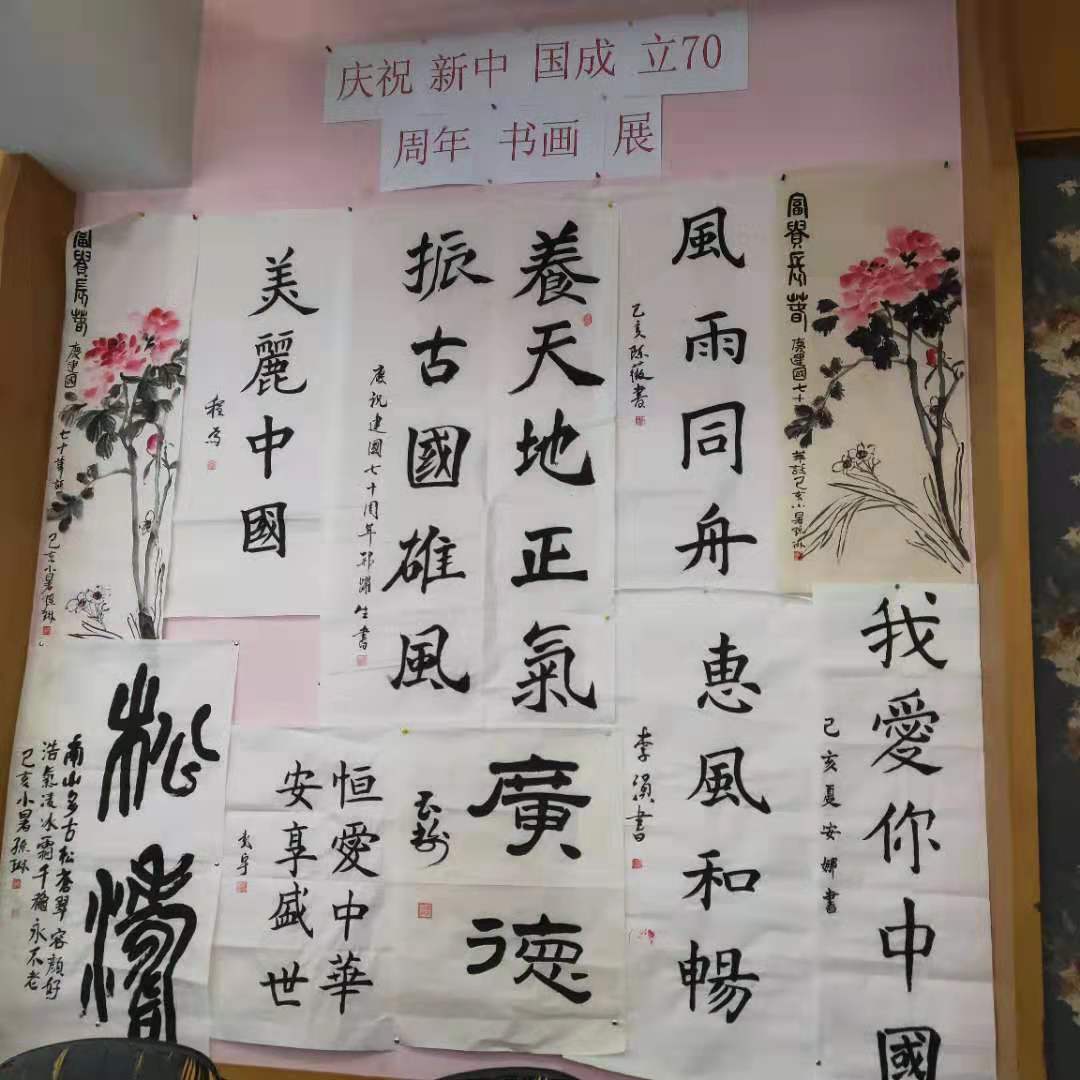 庆祝 新中 国成 立70
周年 书画 展
富貴長春
慶建國
七十華誕
己亥小暑
美麗中國
養天地正氣
振古國雄風
慶祝建國七十周年
書
風雨同舟
乙亥陈薇書
富貴長春
慶建國七十
華誕己亥小暑
松情
南山多古松蒼翠容顔好
浩氣凌冰霜千龝永不老
己亥小暑孫琳
恒愛中華
安享盛世
廣德
惠風和暢
李瀕書
我愛你中國
己亥夏安娜書